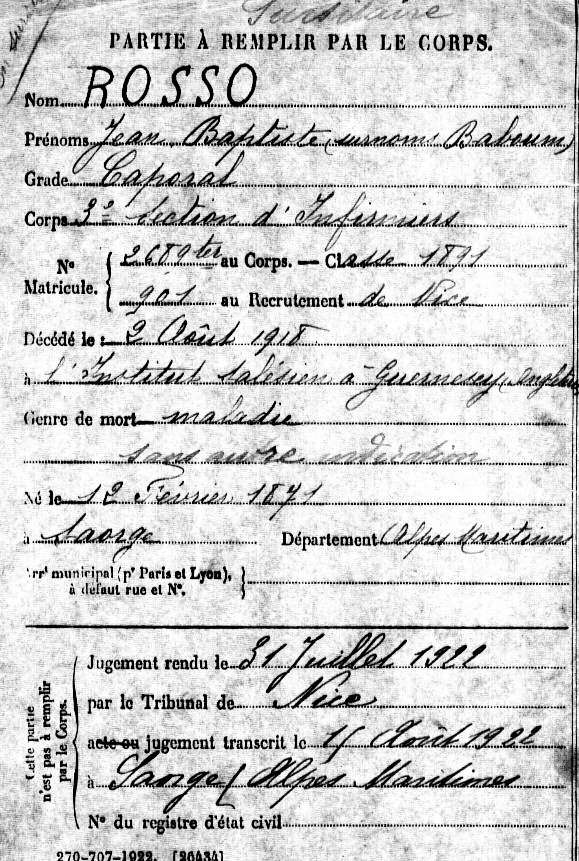 Sursitaire
PARTIE À REMPLIR PAR LE CORPS.
Nom ROSSO
Prénoms Jean Baptiste (surnoms Baboum)
Grade Caporal
Corps 3e Section d'Infirmiers
N° Matricule. { 2689ter au Corps. — Classe 1891
901 au Recrutement de Nice
Décédé le : 2 Août 1918
à l'Institut Salésien à Guernesey (Angleterre
Genre de mort maladie
sans autre indication
Né le 12 Février 1871
à Saorge Département Alpes Maritimes
Arrt municipal (pr Paris et Lyon),
à défaut rue et N°.
Cette partie n'est pas à remplir par le Corps.
Jugement rendu le 31 Juillet 1922
par le Tribunal de Nice
acte ou jugement transcrit le 15 Août 1922
à Saorge (Alpes Maritimes
N° du registre d'état civil
270-707-1922. [26434]